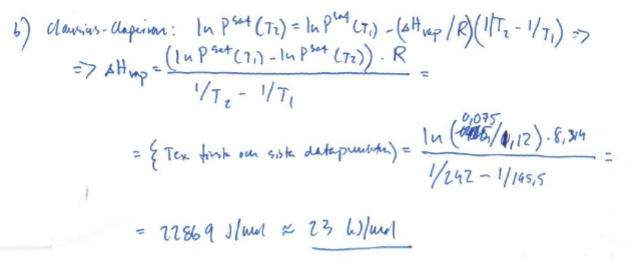 b) Clausius-Clapeyron: ln P^sat (T₂) = ln P^sat (T₁) - (ΔH_vap / R)(1/T₂ - 1/T₁) =>
=> ΔH_vap = (ln P^sat (T₁) - ln P^sat (T₂)) · R / 1/T₂ - 1/T₁ =
= { Tex första och sista datapunkten } = ln (0,075 / 1,12) · 8,314 / 1/242 - 1/195,5 =
= 22869 J/mol ≈ 23 kJ/mol